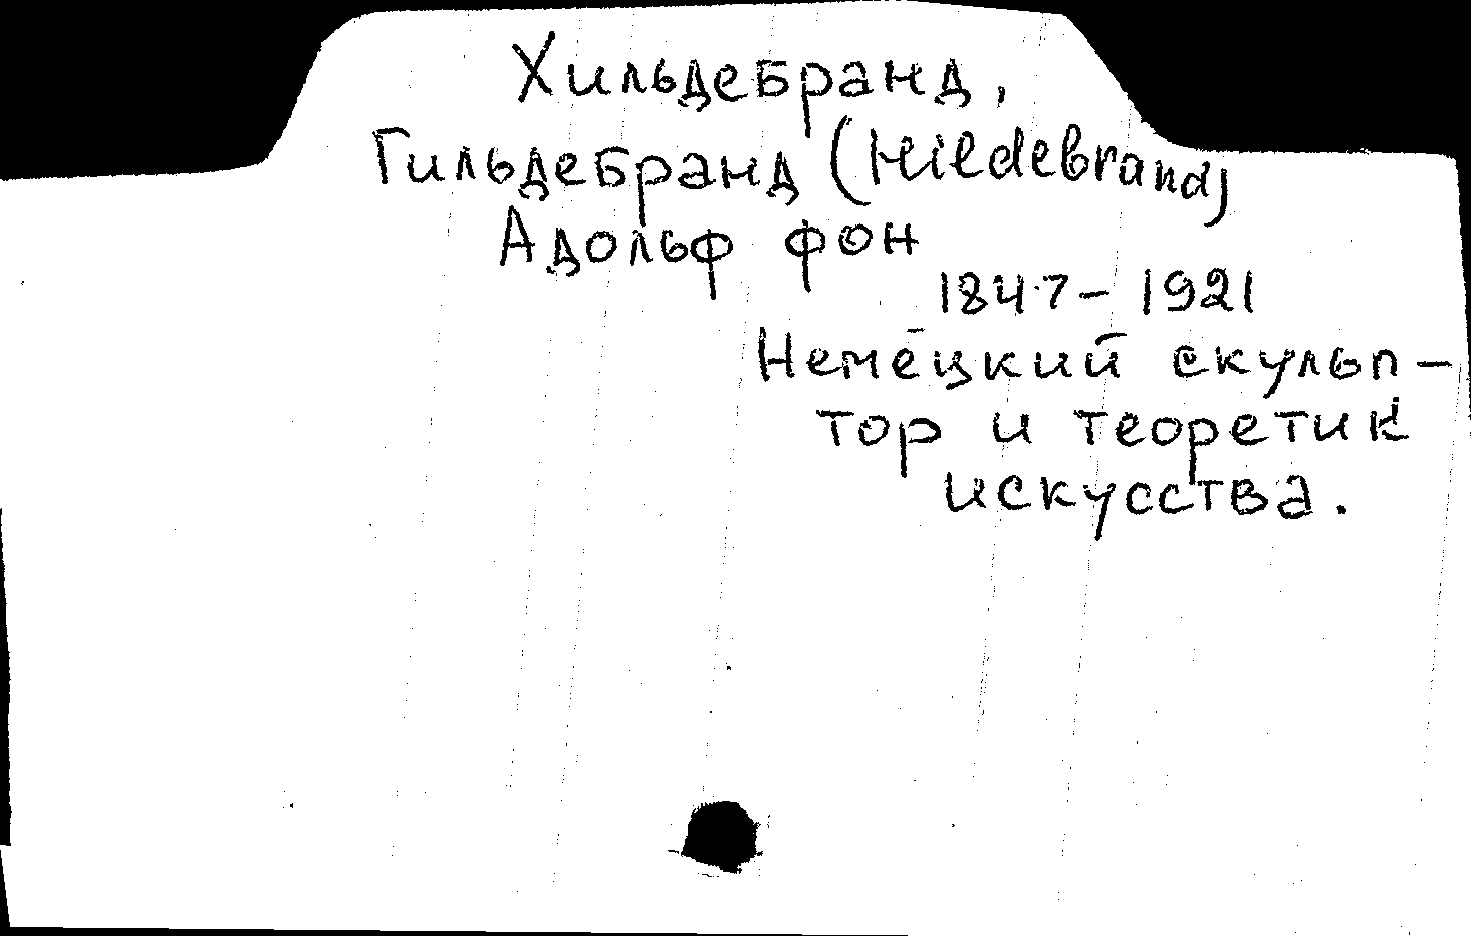 Хильдебранд,
Гильдебранд (Hildebrand)
Адольф фон
1847 – 1921
Немецкий скульп-
тор и теоретик
искусства.